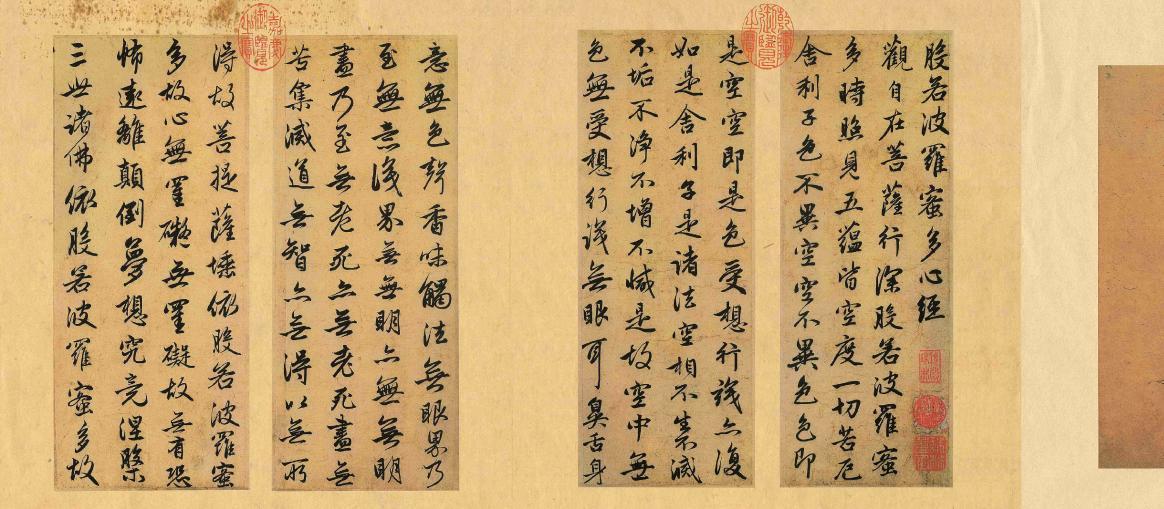 般若波羅蜜多心經
觀自在菩薩行深般若波羅蜜
多時照見五蘊皆空度一切苦厄
舍利子色不異空空不異色色即
乾隆御覽之寶
是空空即是色受想行識亦復
如是舍利子是諸法空相不生不滅
不垢不淨不增不減是故空中無
色無受想行識無眼耳鼻舌身
意無色聲香味觸法無眼界乃
至無意識界無無明亦無無明
盡乃至無老死亦無老死盡無
苦集滅道無智亦無得以無所
嘉慶御覽之寶
得故菩提薩埵依般若波羅蜜
多故心無罣礙無罣礙故無有恐
怖遠離顛倒夢想究竟涅槃
三世諸佛依般若波羅蜜多故